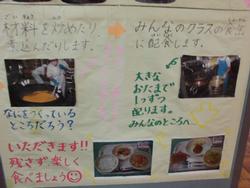 材料を炒めたり、
煮込んだりします。
なにをつくっている
ところだろう？
みんなのクラスの食缶
に配食します。
大きな
おたまで
1つずつ
配ります。
みんなのところへ
いただきます!!
残さず楽しく
食べましょう